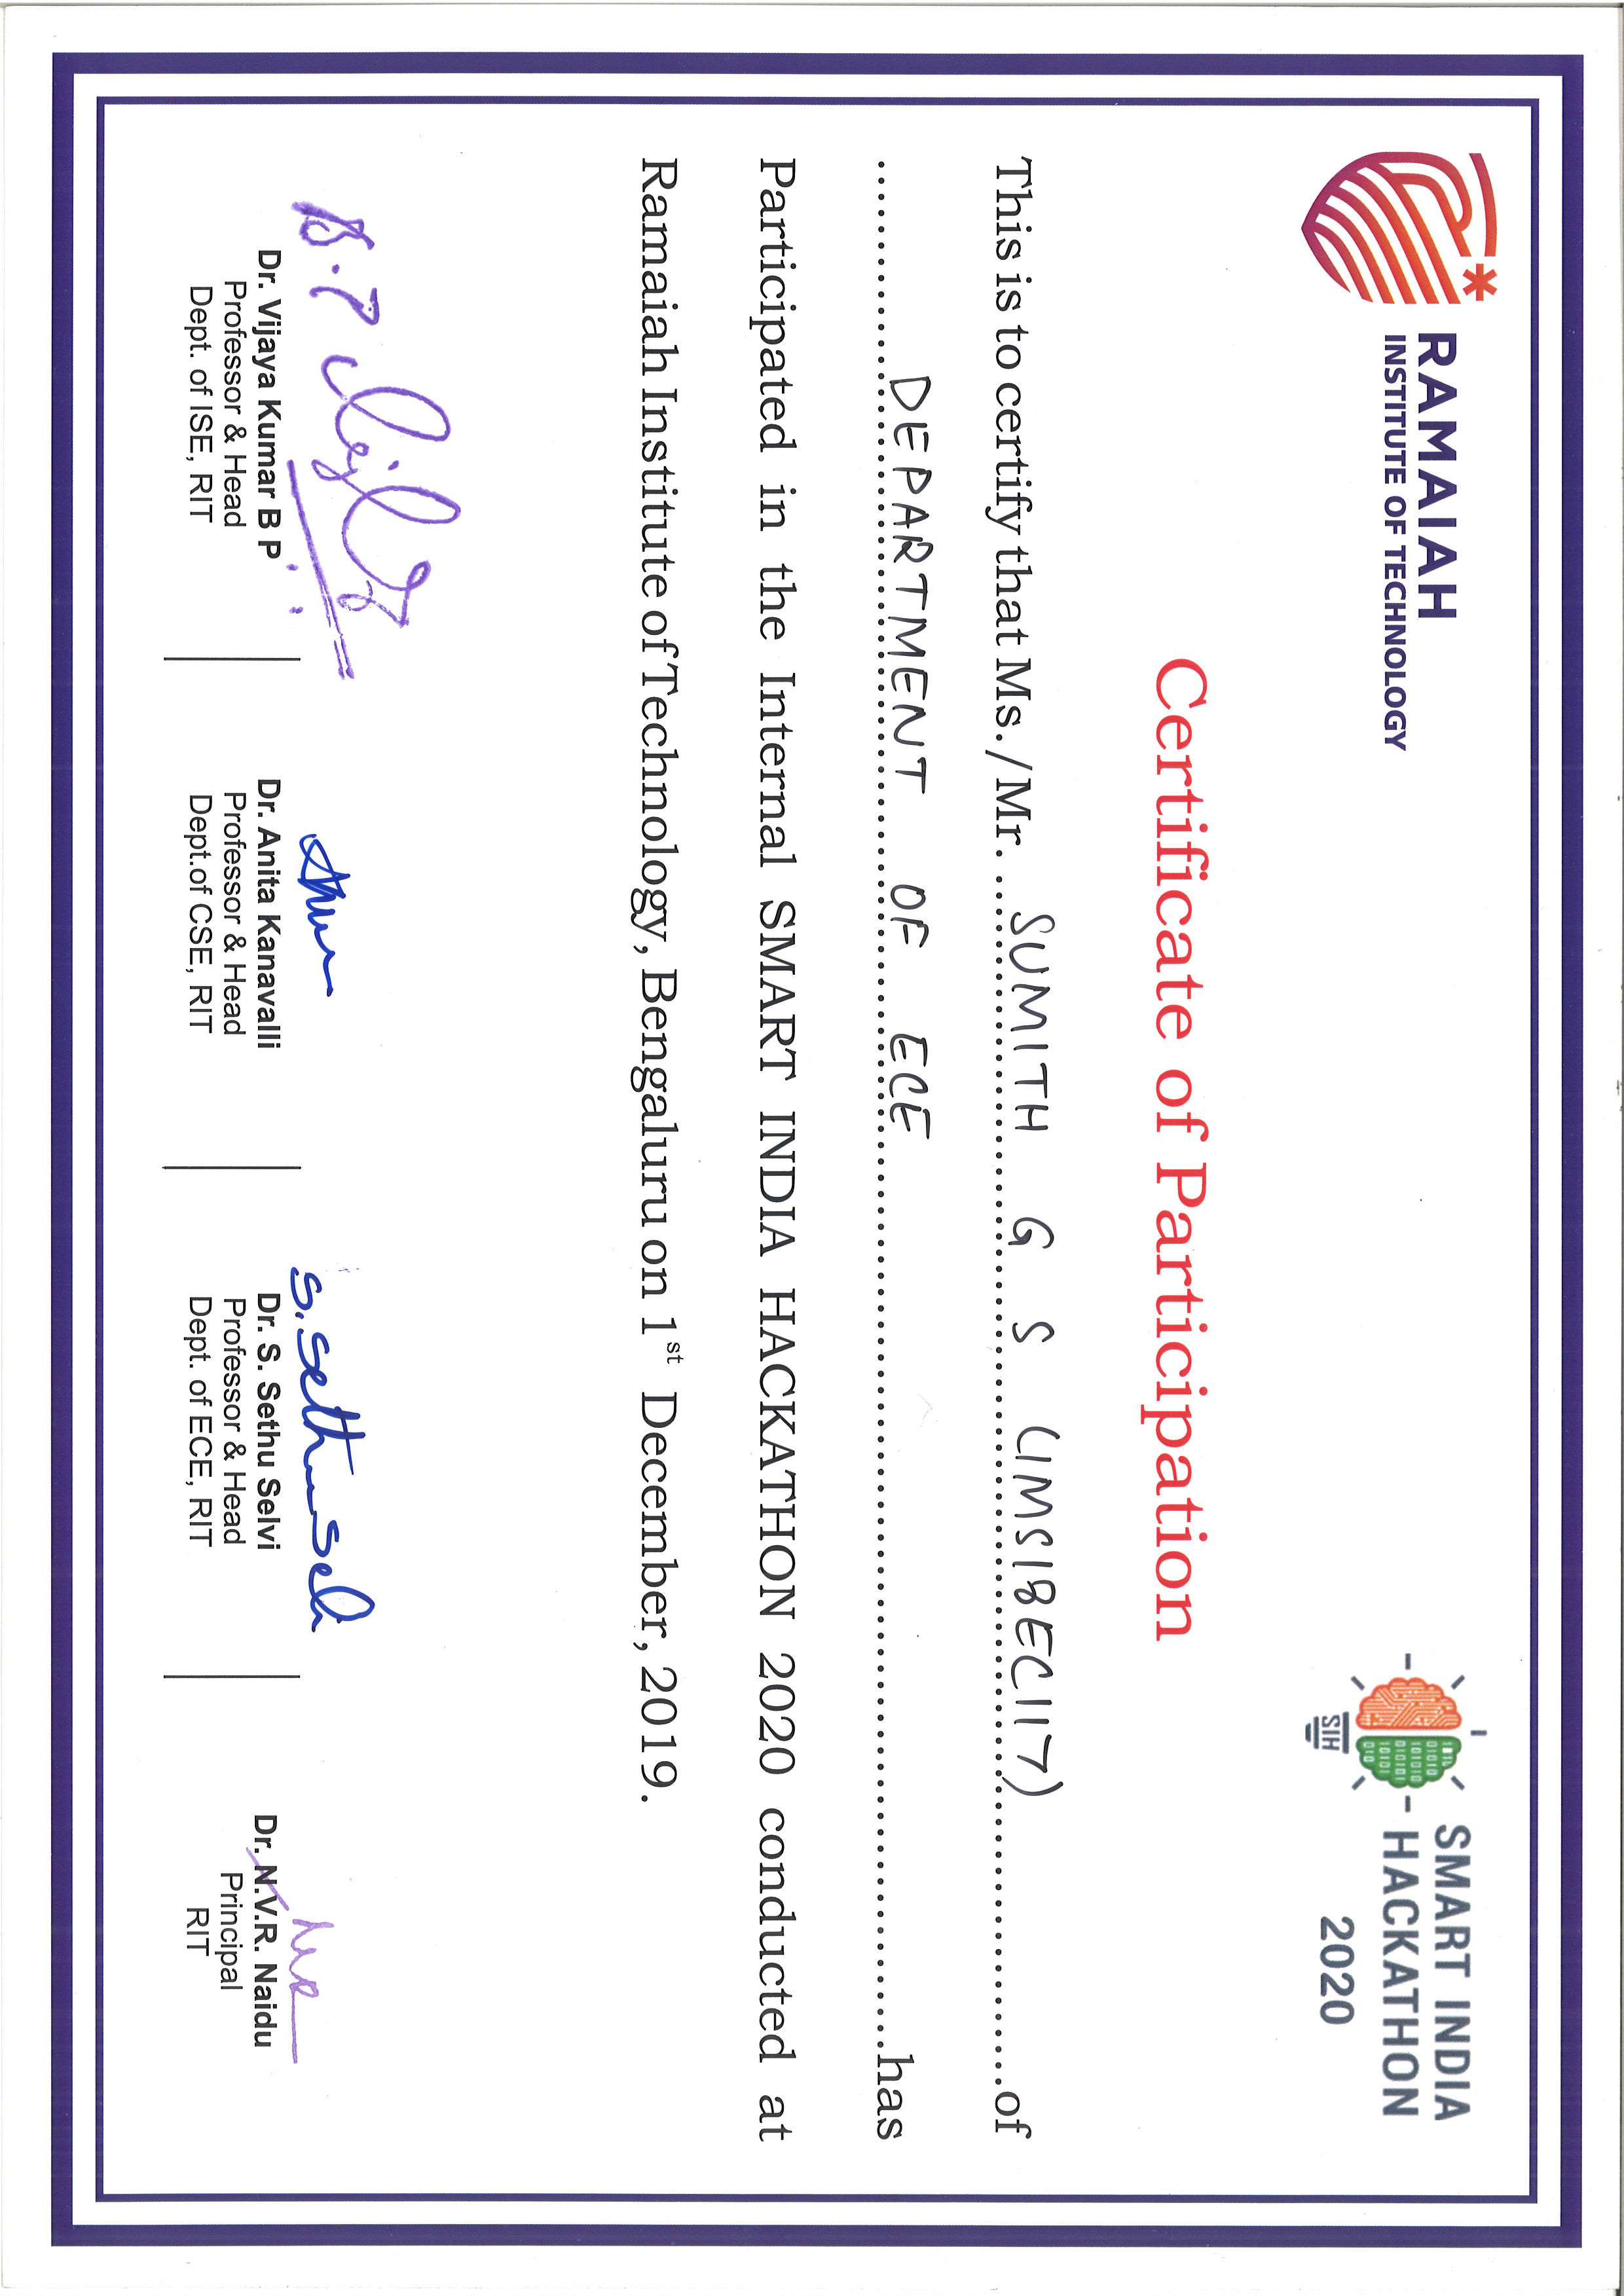 RAMAIAH
INSTITUTE OF TECHNOLOGY
SMART INDIA
HACKATHON
2020
SIH
Certificate of Participation
This is to certify that Ms./Mr. SUMITH G S (1MS18EC117) of
DEPARTMENT OF ECE has
Participated in the Internal SMART INDIA HACKATHON 2020 conducted at
Ramaiah Institute of Technology, Bengaluru on 1st December, 2019.
S. Sethu Selvi
Dr. Vijaya Kumar B P
Professor & Head
Dept. of ISE, RIT
Dr. Anita Kanavalli
Professor & Head
Dept.of CSE, RIT
Dr. S. Sethu Selvi
Professor & Head
Dept. of ECE, RIT
Dr. N.V.R. Naidu
Principal
RIT